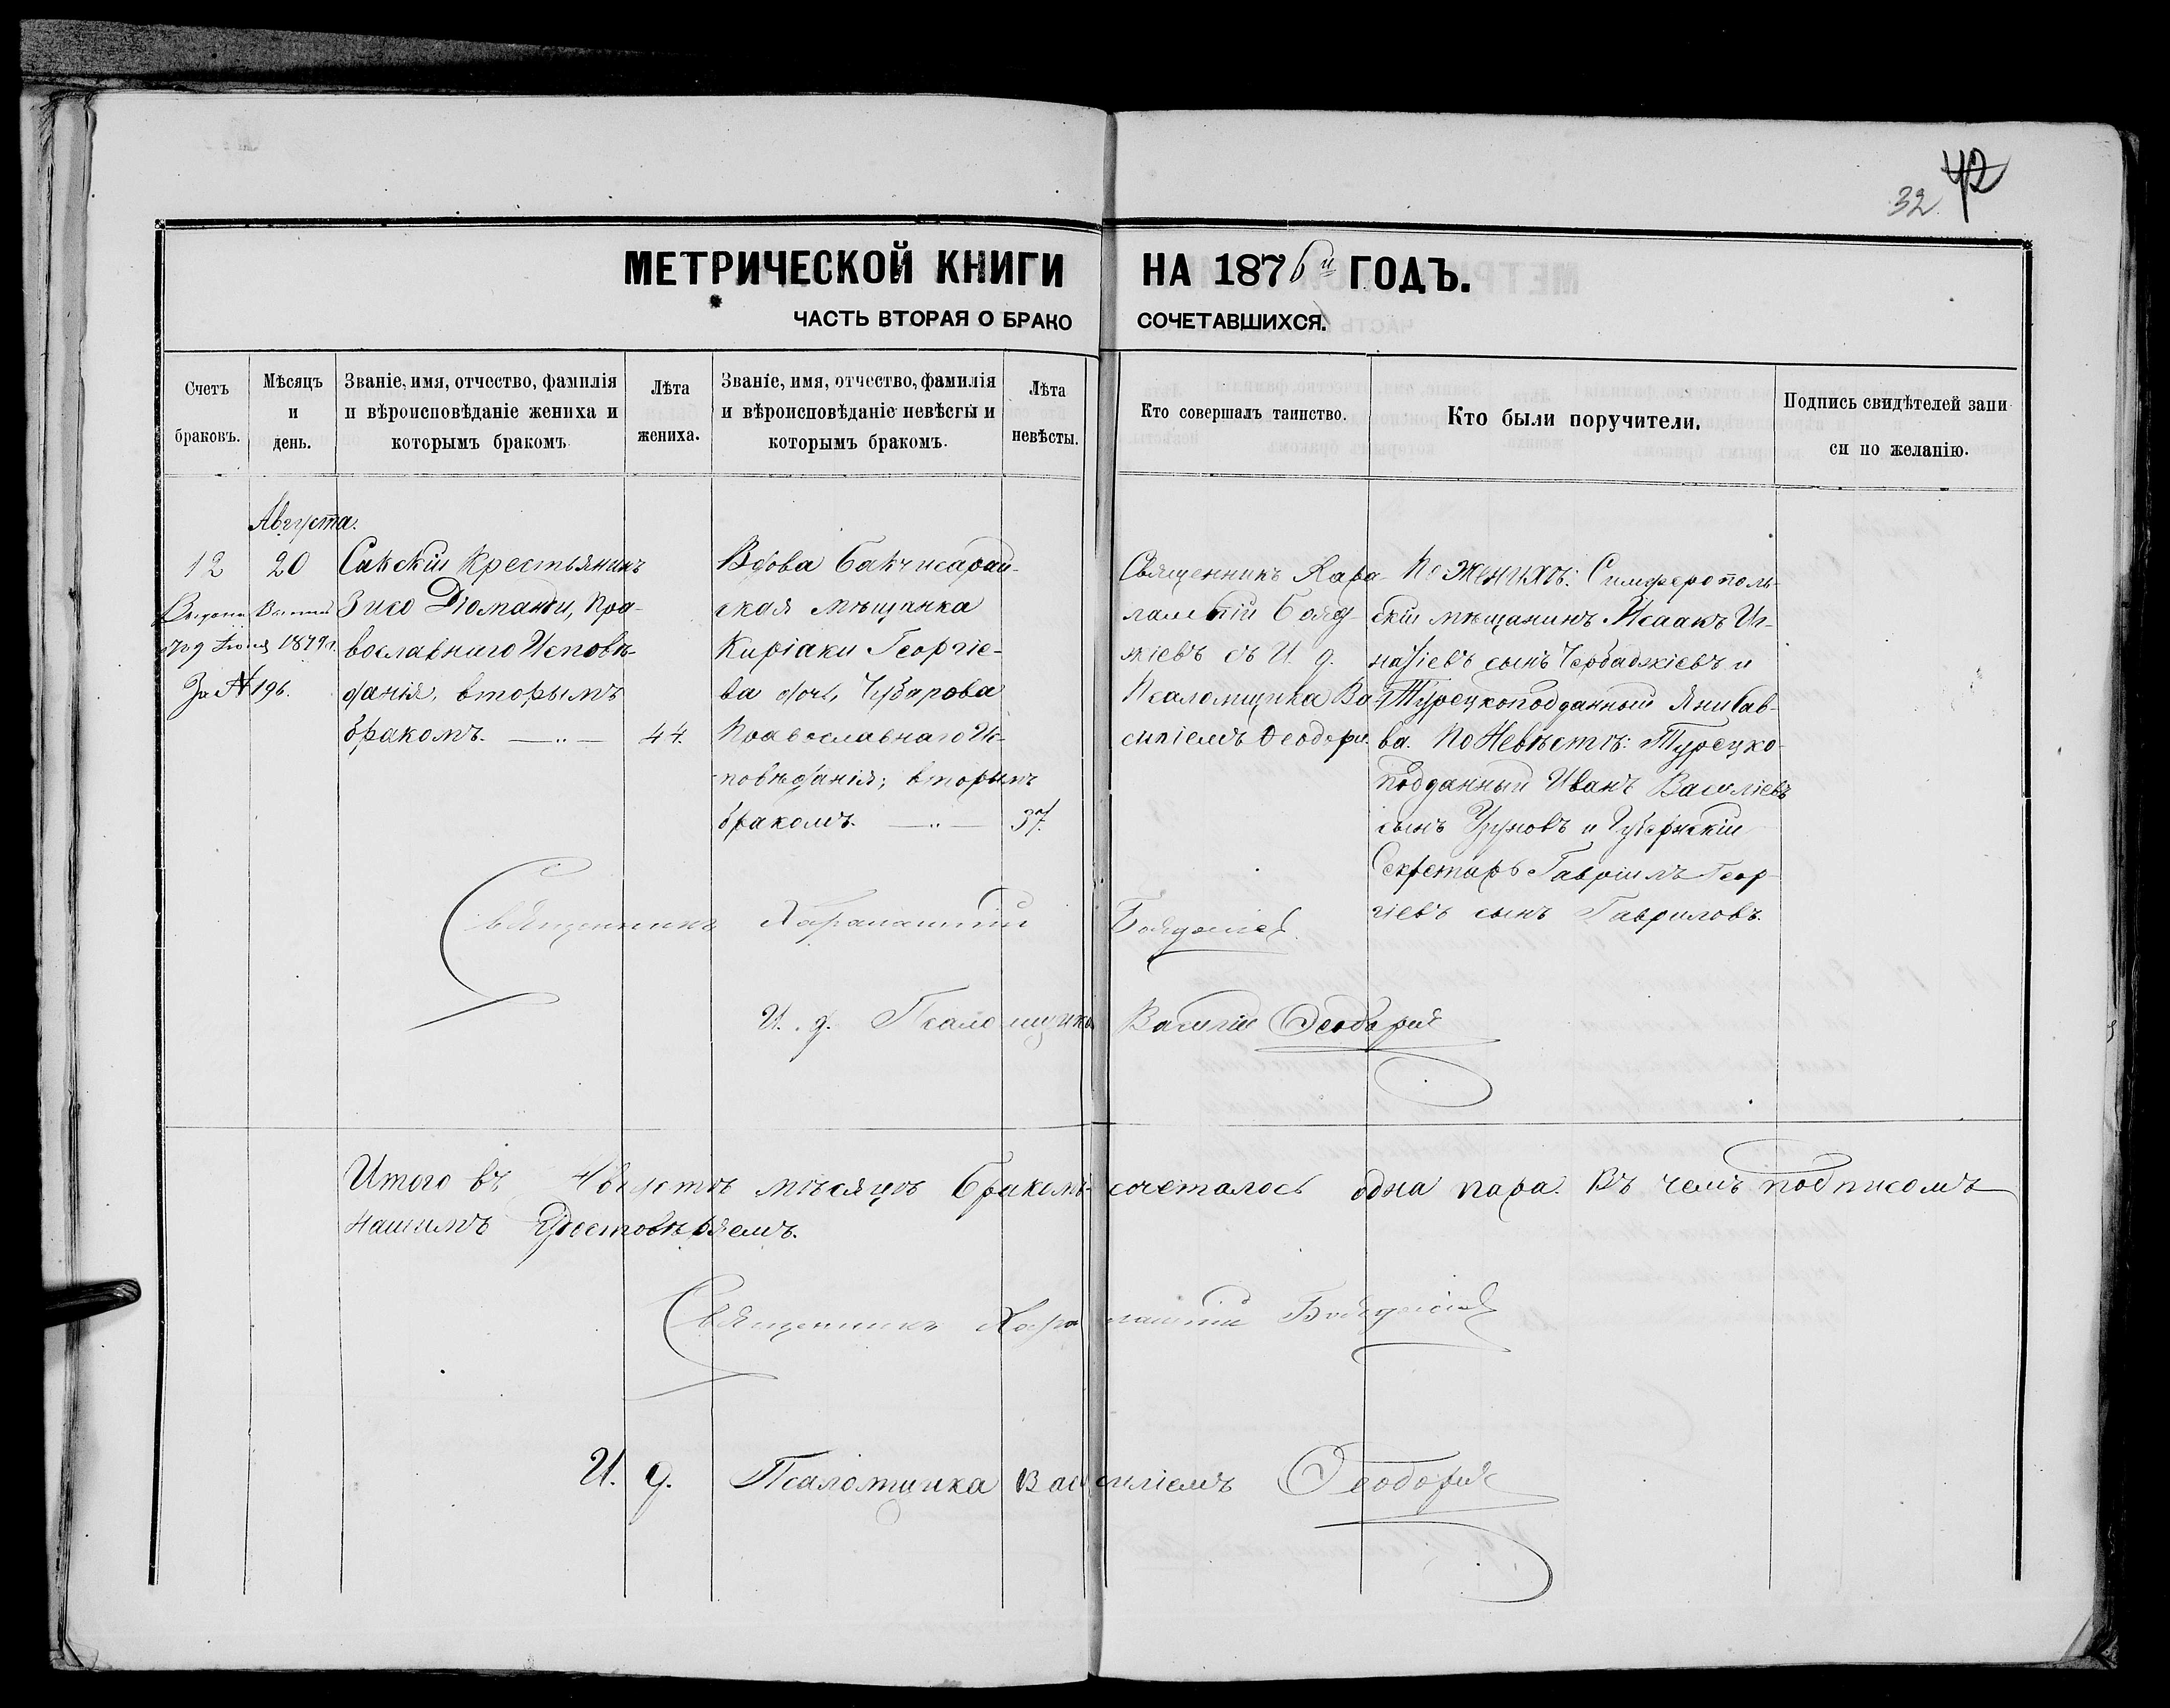 42
32
МЕТРИЧЕСКОЙ КНИГИ НА 1876й ГОДЪ.
ЧАСТЬ ВТОРАЯ О БРАКОСОЧЕТАВШИХСЯ.
Счетъ браковъ.
Мѣсяцъ и день.
Званіе, имя, отчество, фамилія
и вѣроисповѣданіе жениха и
которымъ бракомъ.
Лѣта жениха.
Званіе, имя, отчество, фамилія
и вѣроисповѣданіе невѣсты и
которымъ бракомъ.
Лѣта невѣсты.
Кто совершалъ таинство.
Кто были поручители.
Подпись свидѣтелей запи
си по желанію.
Августа.
12
20
За № 196.
Сакскій Крестьянинъ
Зисо Діоманди, Пра-
вославнаго Исповѣ-
данія, вторымъ
бракомъ.
44.
Вдова Бакчисарай-
ская мѣщанка
Киріаки Георгіе-
ва дочь, Чубарова
Православнаго Ис-
повѣданія; вторымъ
бракомъ.
37.
Священникъ Хара-
лампій Бояд-
жіевъ съ И. д.
Псаломщика Ва-
силіемъ Ѳеодори.
По Женихѣ: Симферополь-
скій мѣщанинъ Исаакъ Иг-
натіевъ сынъ Чорбаджіевъ и
Турецкоподданный Яни Сав-
ва. По Невѣстѣ: Турецко-
подданный Иванъ Василіевъ
сынъ Узуновъ и Губернскій
Секретарь Гавріилъ Геор-
гіевъ сынъ Гавриловъ.
Священникъ Харалампій Бояджіевъ
И. д. Псаломщика Василій Ѳеодори
Итого въ Августѣ мѣсяцѣ Бракомъ сочеталось одна пара. Въ чемъ подписомъ
нашимъ удостовѣряемъ.
Священникъ Харалампій Бояджіевъ
И. д. Псаломщика Василіемъ Ѳеодори